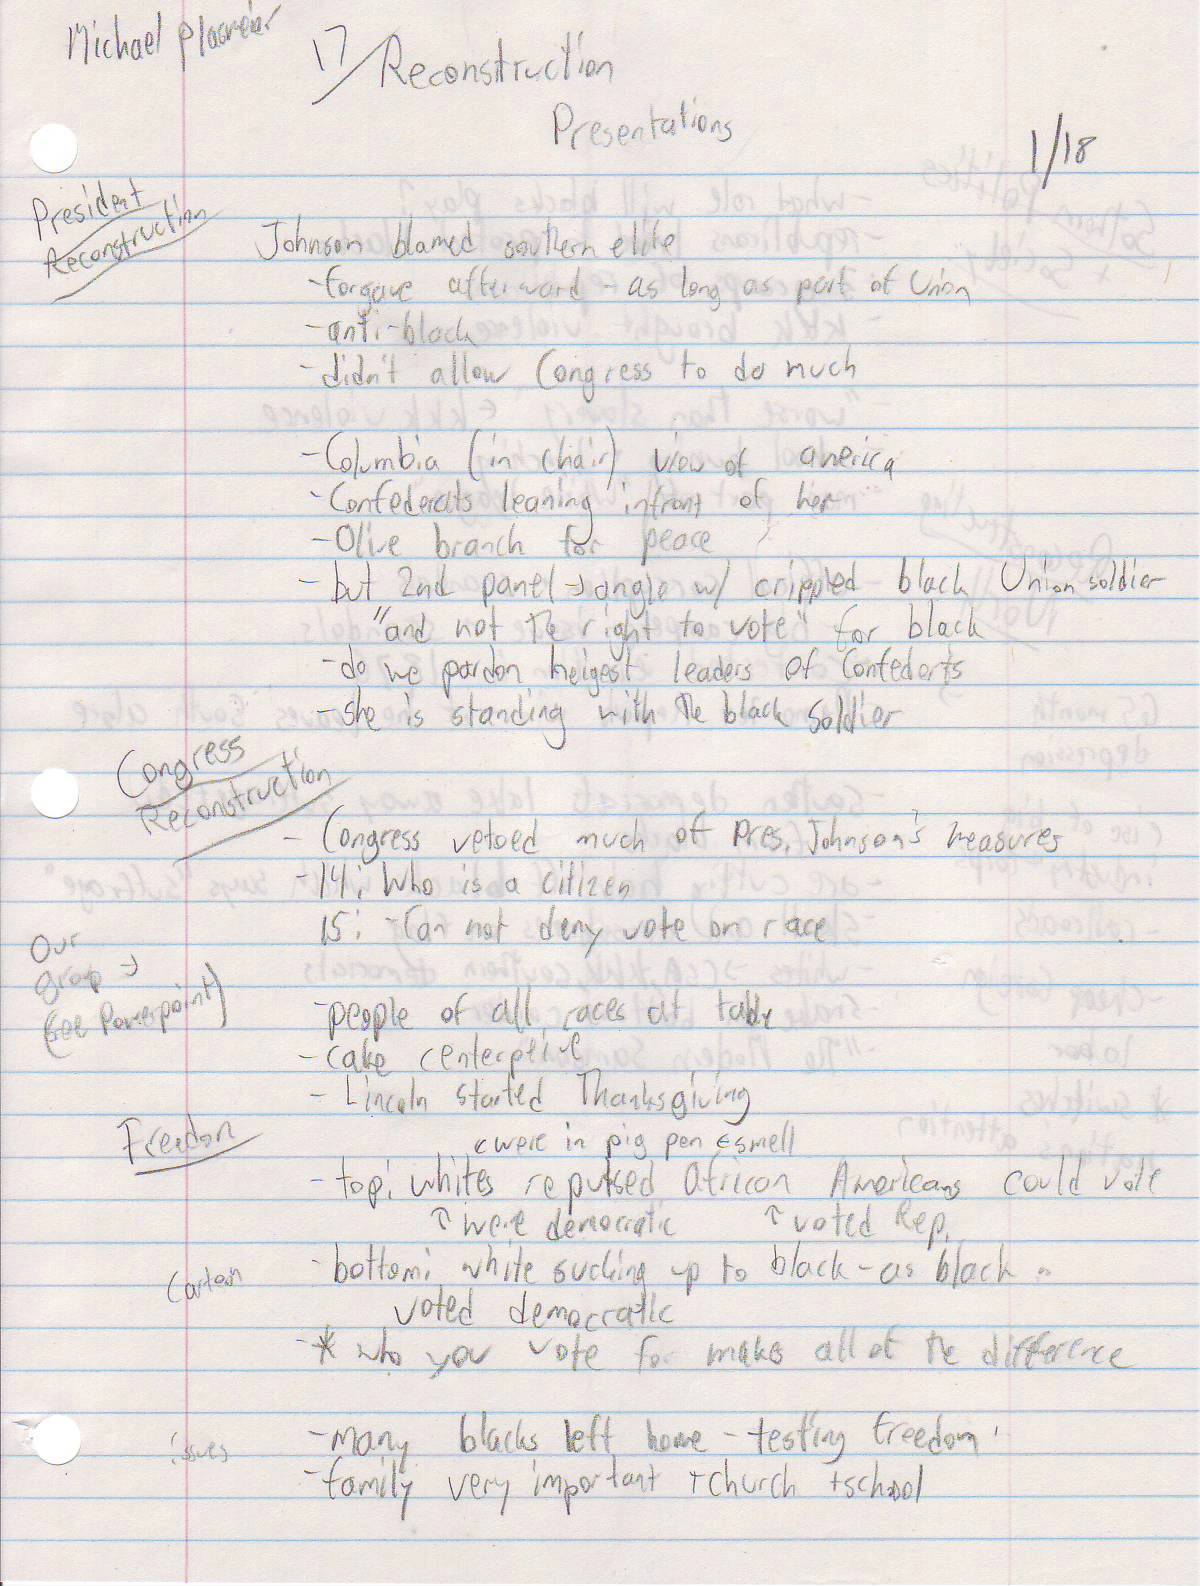 Michael Plasmeier
17/Reconstruction
Presentations
1/18
President
Reconstruction
Johnson blamed southern elite
-forgave afterward - as long as part of Union
-anti-black
-didn't allow Congress to do much
-Columbia (in chair) view of america
-Confederats leaning infront of her
-Olive branch for peace
-but 2nd panel → angle w/ crippled black Union soldier
"and not the right to vote" for black
-do we pardon heigest leaders of Confederts
-she is standing with the black soldier
Congress
Reconstruction
- Congress vetoed much of Pres. Johnson's measures
-14: Who is a citizen
15: -Can not deny vote on race
Our
group →
(see Powerpoint)
-people of all races at table
-cake centerpeive
- Lincoln started Thanksgiving
Freedom
< were in pig pen ← smell
-top: whites repulsed African Americans could vote
↑ were democratic ↑ voted Rep.
Cartoon
-bottom: white sucking up to black - as black
voted democratic
-* who you vote for makes all of the difference
issues
-many blacks left home - testing freedom
-family very important +church +school